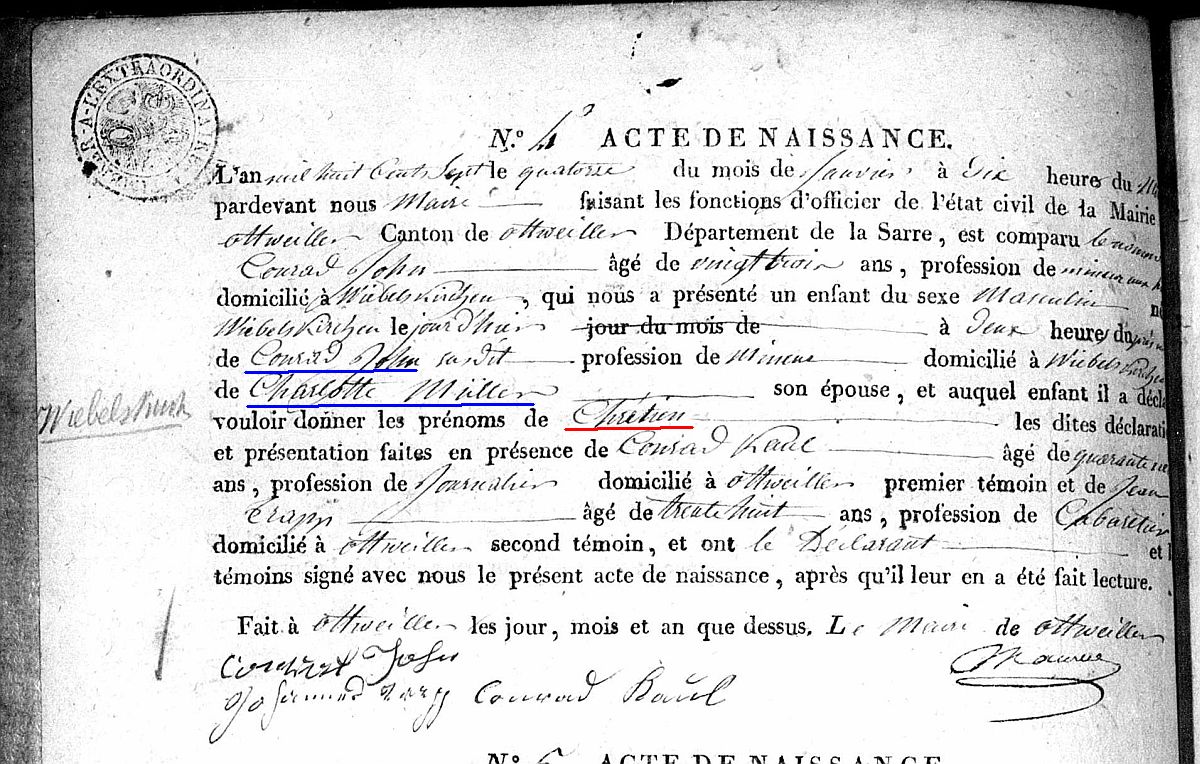 A-L'EXTRAORDINAIRE
N.º 4 ACTE DE NAISSANCE.
L'an mil huit Cent Sept le quatorze du mois de Janvier à Dix heures du
pardevant nous Maire faisant les fonctions d'officier de l'état civil de la Mairie
ottweiller Canton de ottweiller Département de la Sarre, est comparu le nommé
Conrad John âgé de vingt trois ans, profession de mineur
domicilié à Wiebelskirchen, qui nous a présenté un enfant du sexe Masculin
Wiebelskirchen le jourd'hui jour du mois de à Deux heures du
de Conrad John susdit profession de Mineur domicilié à Wiebelskirchen
de Charlotte Müller son épouse, et auquel enfant il a décla
Wiebelskirch
vouloir donner les prénoms de Chrétien les dites déclarati
et présentation faites en présence de Conrad Kaul âgé de quarante
ans, profession de Journalier domicilié à ottweiller premier témoin et de Jean
âgé de trente huit ans, profession de Cabaretier
domicilié à ottweiller second témoin, et ont le Déclarant et
témoins signé avec nous le présent acte de naissance, après qu'il leur en a été fait lecture.
Fait à ottweiller les jour, mois et an que dessus. Le Maire de ottweiller
Conrad John
Conrad Kaul
N.º 5 ACTE DE NAISSANCE